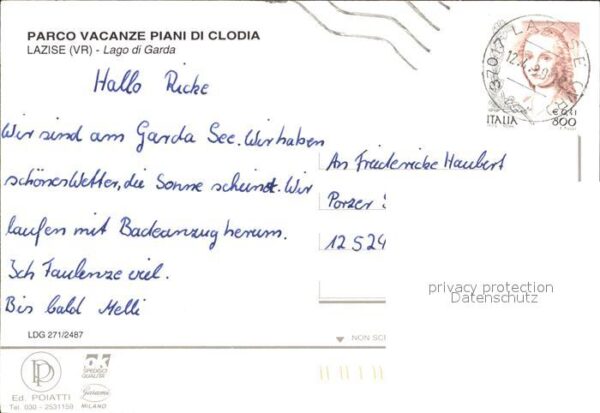 PARCO VACANZE PIANI DI CLODIA
LAZISE (VR) - Lago di Garda
Hallo Ricke
Wir sind am Garda See. Wir haben
schönes Wetter, die Sonne scheint. Wir
laufen mit Badeanzug herum.
Ich Faulenze viel.
Bis bald Melli
An Friedericke Haubert
Porzer
12524
37017 LAZISE
ITALIA
€ 0,41
800
privacy protection
Datenschutz
LDG 271/2487
NON SC
Ed. POIATTI
Tel. 030 - 2531159
SPEDISCI
QUALITÀ
Garami
MILANO